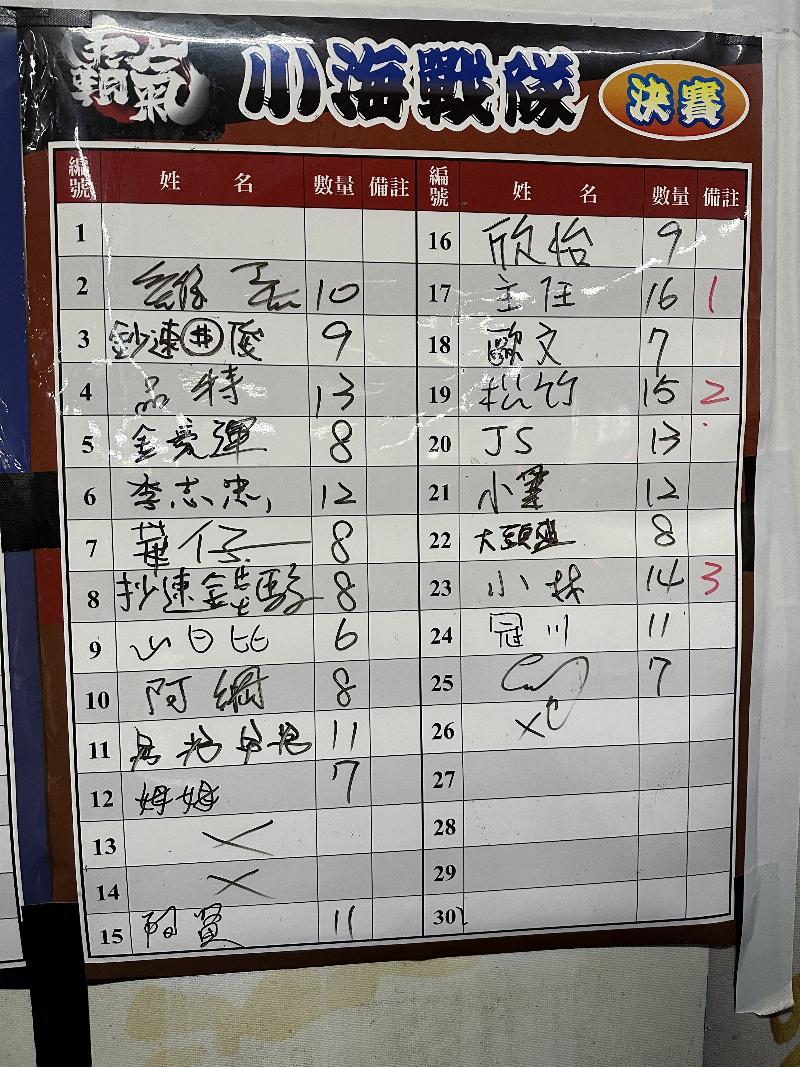 霸氣
小海戰隊
決賽
編號 姓名 數量 備註
1
2 10
3 鈔速井俊 9
4 品特 13
5 金愛運 8
6 李志忠 12
7 華仔 8
8 抄速 8
9 山日比 6
10 阿綱 8
11 11
12 姆姆 7
13 ×
14 ×
15 阿賢 11
編號 姓名 數量 備註
16 欣怡 9
17 主任 16 1
18 歐文 7
19 松竹 15 2
20 JS 13
21 小筆 12
22 大頭 8
23 小林 14 3
24 冠川 11
25 7
26 ×
27
28
29
30